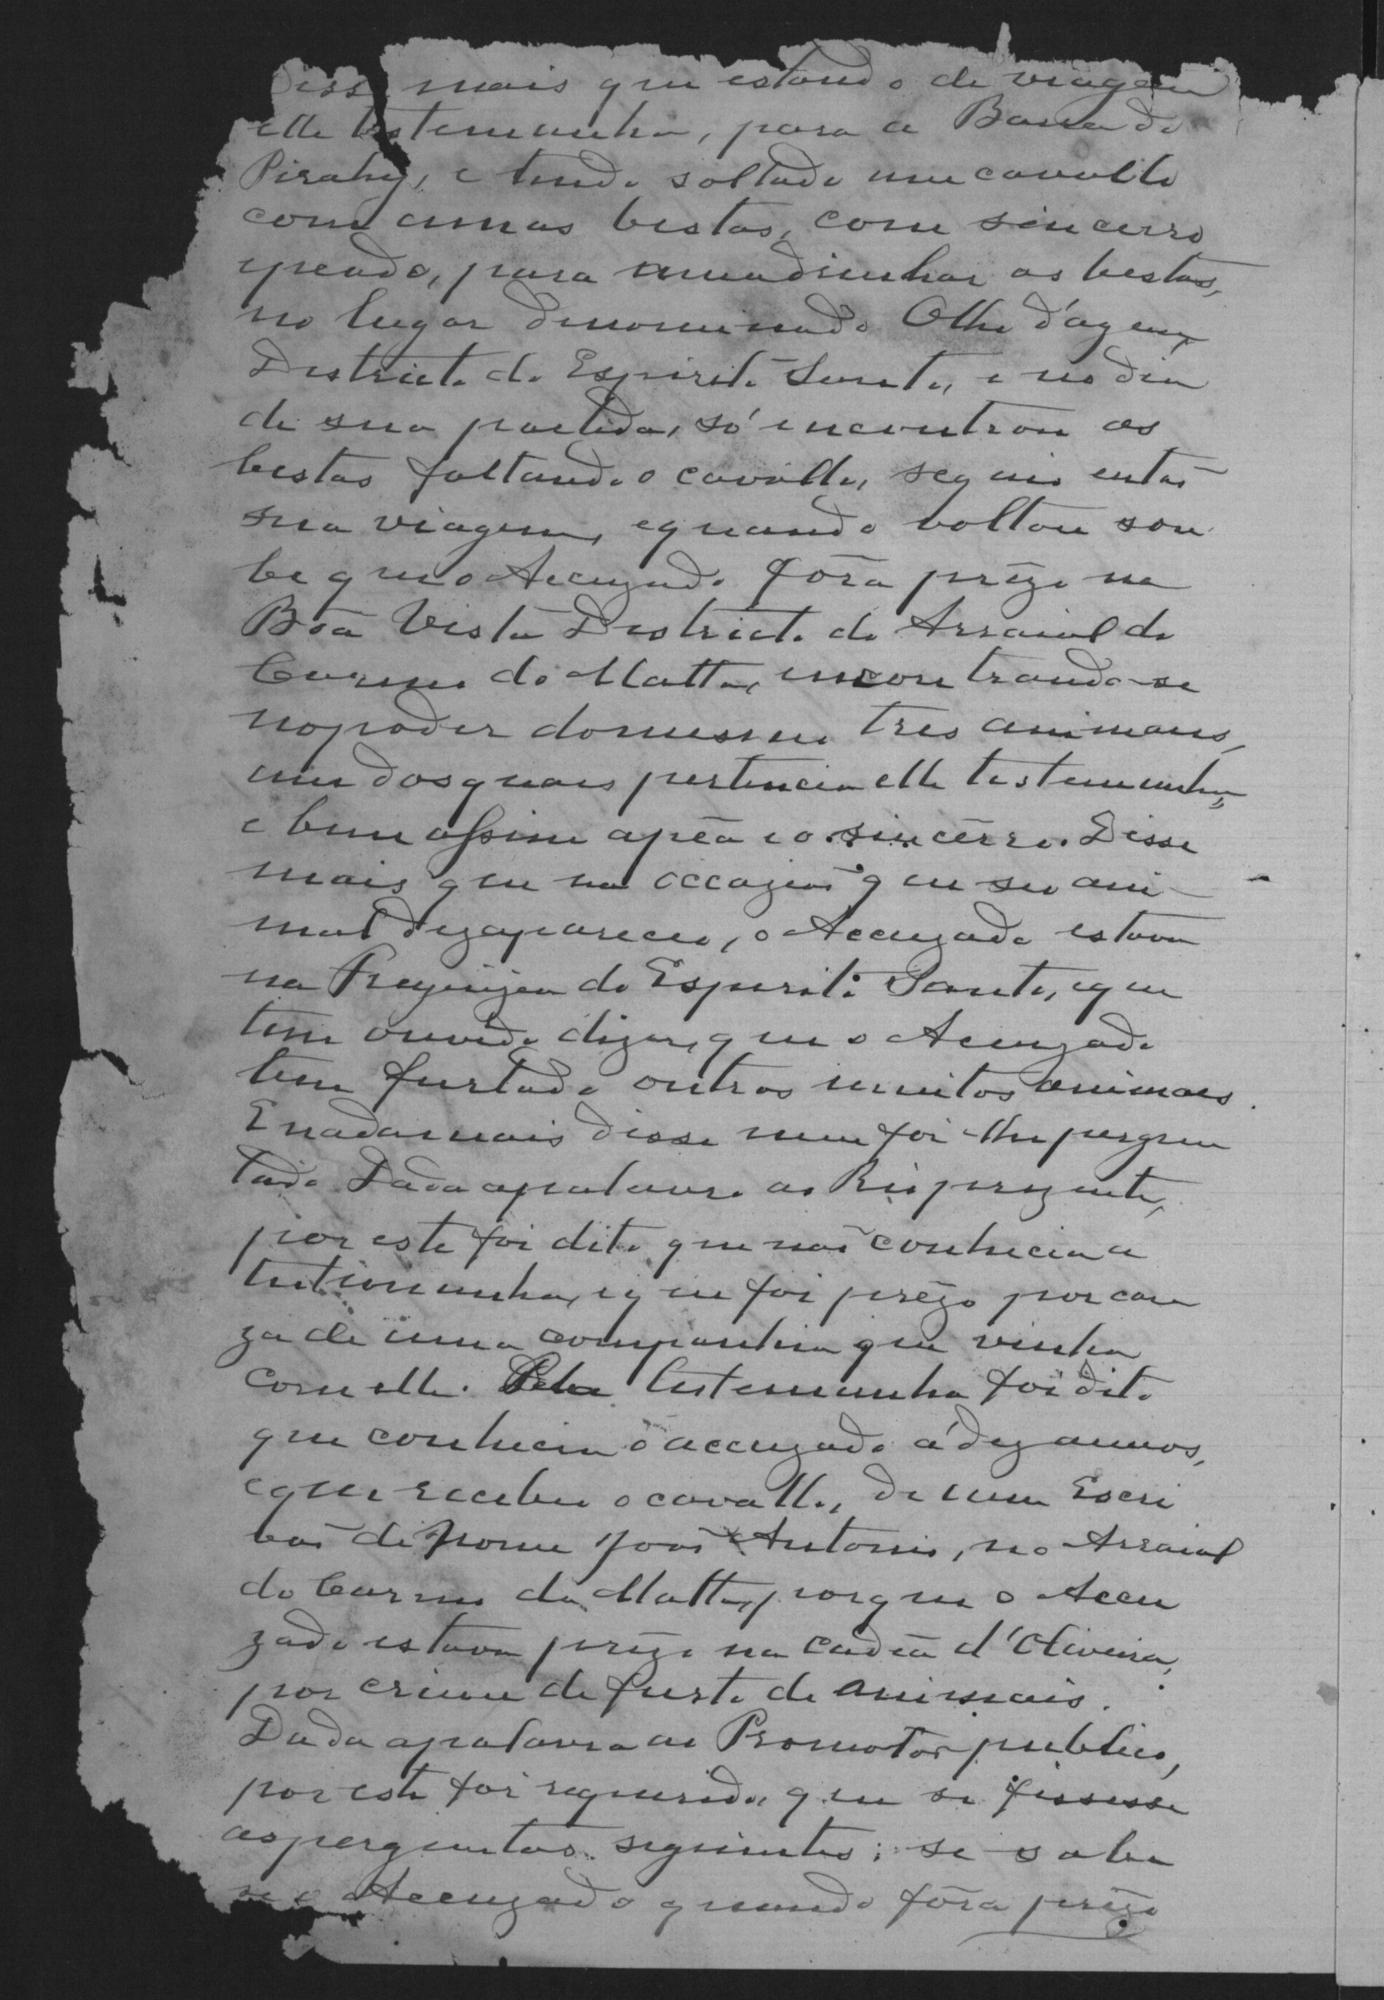 Diss mais que estando de viagem
elle testemunha, para a Barra do
Pirahy, e tendo soltado um cavallo
com umas bestas, com sincerro
e peado, para amadrinhar as bestas,
no lugar denominado Olho d'agua,
Districto do Espirito Santo, e no dia
de sua partida, só encontrou as
bestas faltando o cavallo, seguio entaõ
sua viagem, e quando voltou sou
be que o Accuzado fôra prezo na
Bôa Vista Districto do Arraial do
Carmo da Matta, encontrando-se
no poder do mesmo tres animaes,
um dos quaes pertencia elle testemunha,
e bem assim a pêa e o sincérro. Disse
mais que na occaziaõ que seo ani
mal dezapareceo, o Accuzado estava
na Freguezia do Espirito Santo, e que
tem ouvido dizer, que o Accuzado
tem furtado outros muitos animaes.
E nada mais disse nem foi-lhe pergun
tado. Dada a palavra ao Réo prezente,
por este foi dito que naõ conhecia a
testimunha, e que foi prezo por cau
za de uma companhia que vinha
com elle. Pela testemunha foi dito
que conhecia o accuzado á dez annos,
e que recebeu o cavallo, de um Escri
vaõ de nome Joaõ Antonio, no Arraial
do Carmo da Matta, porque o Accu
zado estava prezo na cadêa d'Oliveira,
por crime de furto de animais.
Dada a palavra ao Promotor publico,
por este foi requerido que se fissesse
as perguntas seguintes: se sabe
se o Accuzado quando fôra prezo